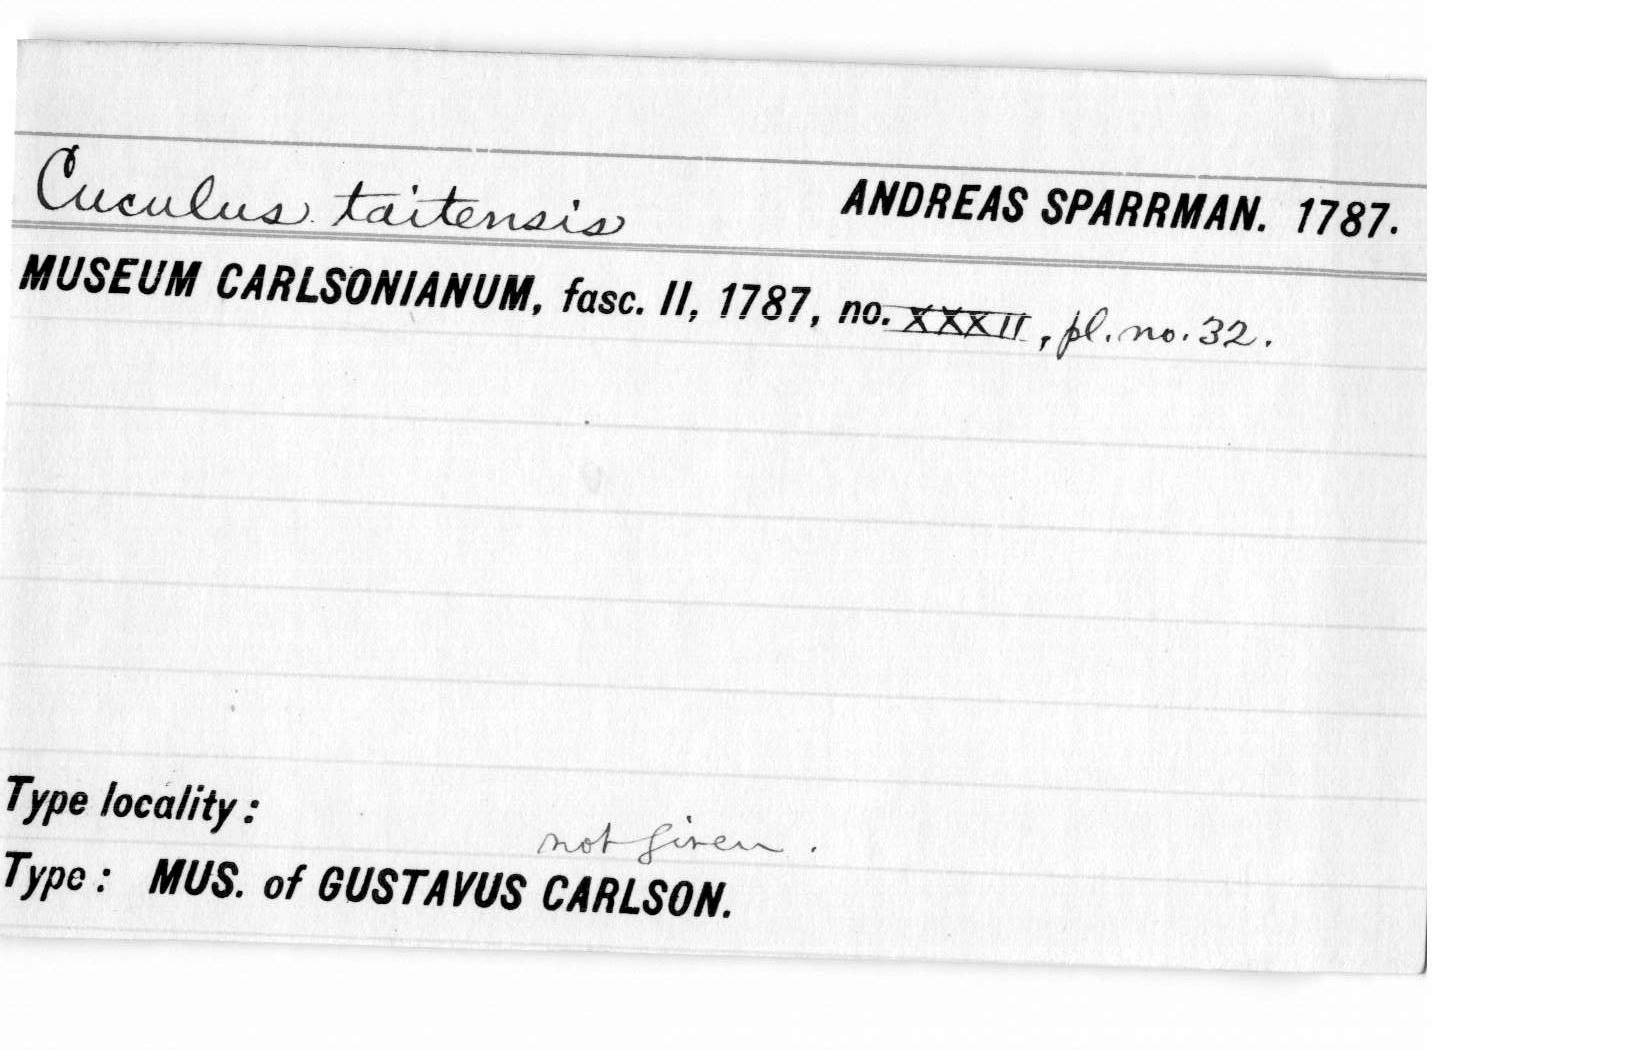 Cuculus taitensis ANDREAS SPARRMAN. 1787.
MUSEUM CARLSONIANUM, fasc. II, 1787, no. XXXII, pl. no. 32.
Type locality:
not given.
Type: MUS. of GUSTAVUS CARLSON.